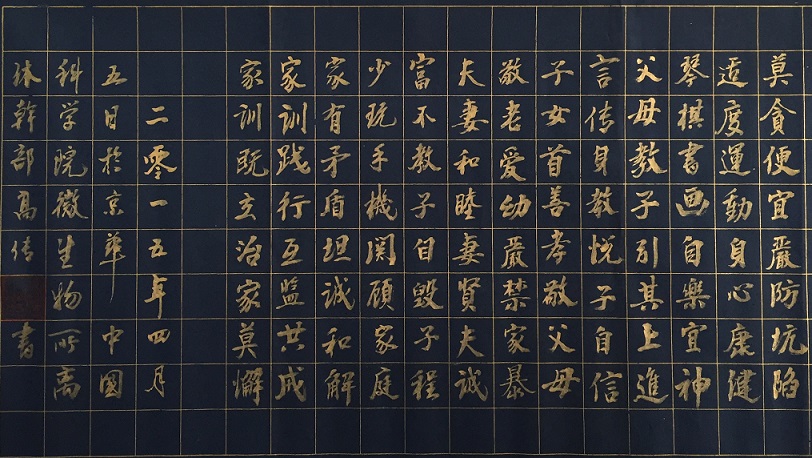 莫貪便宜嚴防坑陷
适度運動身心康健
琴棋書画自樂宜神
父母教子引其上進
言传身教悦子自信
子女首善孝敬父母
敬老愛幼嚴禁家暴
夫妻和睦妻贤夫诚
富不教子自毁子程
少玩手機関顧家庭
家有矛盾坦诚和解
家训践行互監共成
家训既立治家莫懈
二零一五年四月
五日於京華中國
科学院微生物所离
休幹部高传書